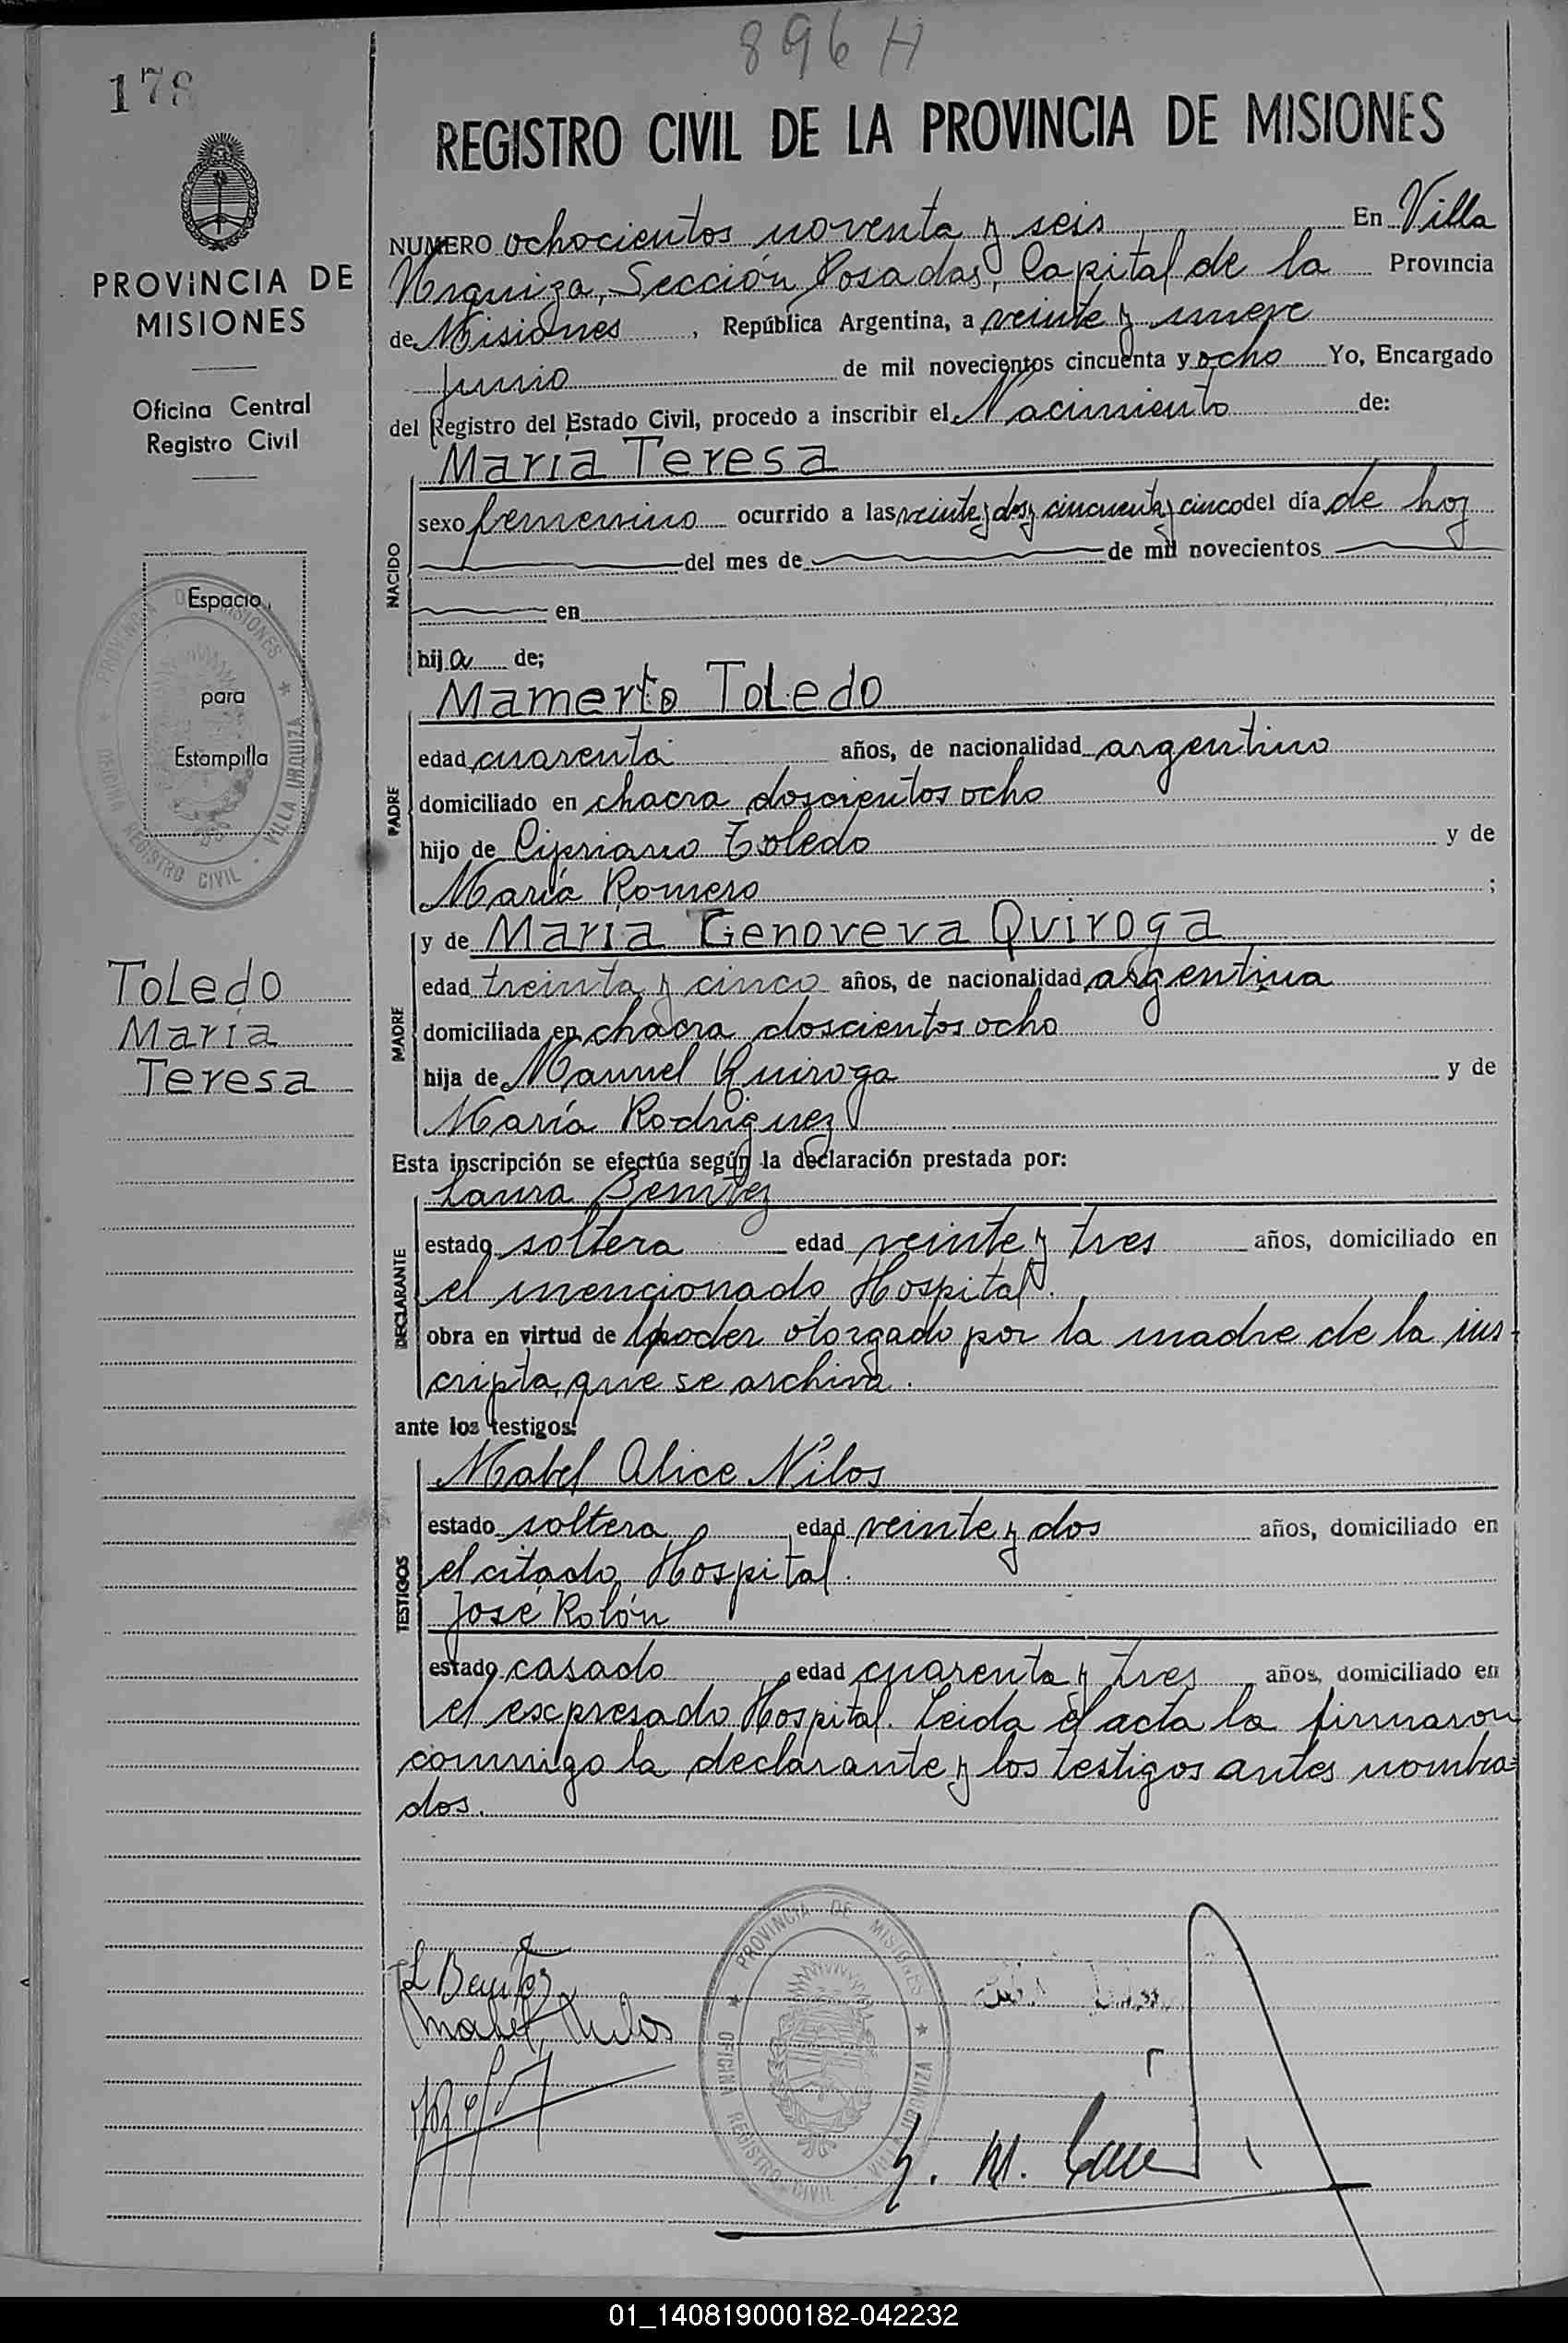 896 H
178
REGISTRO CIVIL DE LA PROVINCIA DE MISIONES
PROVINCIA DE
MISIONES
Oficina Central
Registro Civil
Espacio
para
Estampilla
PROVINCIA DE MISIONES
OFICINA REGISTRO CIVIL · VILLA URQUIZA
Toledo
María
Teresa
NUMERO ochocientos noventa y seis En Villa
Urquiza, Sección Posadas, Capital de la Provincia
de Misiones, República Argentina, a veinte y nueve
junio de mil novecientos cincuenta y ocho Yo, Encargado
del Registro del Estado Civil, procedo a inscribir el Nacimiento de:
NACIDO
María Teresa
sexo femenino ocurrido a las veinte y dos y cincuenta y cinco del día de hoy
del mes de de mil novecientos
en
hija de;
PADRE
Mamerto Toledo
edad cuarenta años, de nacionalidad argentino
domiciliado en chacra doscientos ocho
hijo de Cipriano Toledo y de
María Romero ;
MADRE
y de María Genoveva Quiroga
edad treinta y cinco años, de nacionalidad argentina
domiciliada en chacra doscientos ocho
hija de Manuel Quiroga y de
María Rodríguez
Esta inscripción se efectúa según la declaración prestada por:
DECLARANTE
Laura Benítez
estado soltera edad veinte y tres años, domiciliado en
el mencionado Hospital.
obra en virtud de poder otorgado por la madre de la ins-
cripta, que se archiva.
ante los testigos:
TESTIGOS
Mabel Alice Nilos
estado soltera edad veinte y dos años, domiciliado en
el citado Hospital.
José Rolón
estado casado edad cuarenta y tres años, domiciliado en
el expresado Hospital. Leida el acta la firmaron
conmigo la declarante y los testigos antes nombra=
dos.
L Benítez
Mabel Nilos
PROVINCIA DE MISIONES
OFICINA REGISTRO CIVIL · VILLA URQUIZA
01_140819000182-042232